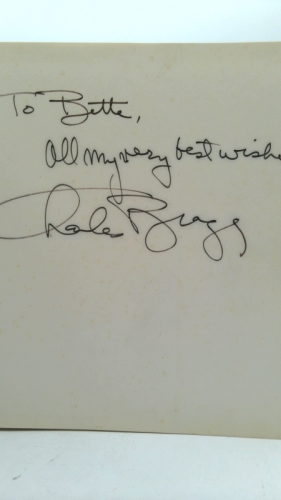 To Bette,
All my very best wishe
Charles Bragg